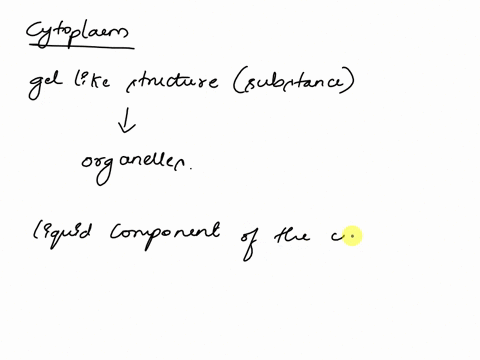 Cytoplasm
gel like structure (substance)
↓
organelles.
liquid component of the c